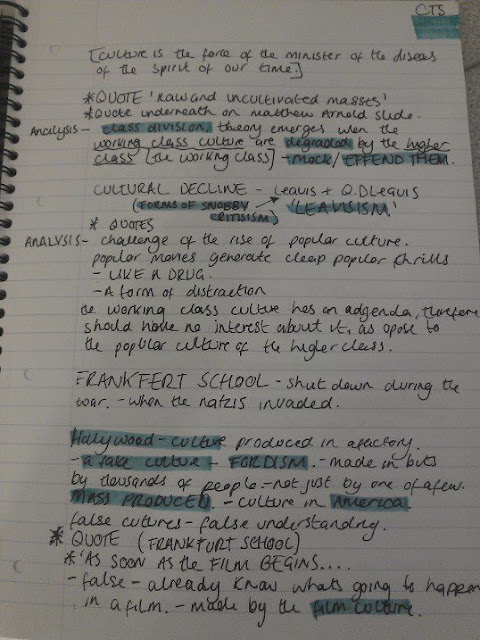 CTS
[Culture is the force of the minister of the diseas
of the spirit of our time.]
*QUOTE 'Raw and uncultivated masses'
*Quote underneath on matthew Arnold slide.
Analysis - class division, theory emerges wen the
working class culture are degraded by the higher
class [the working class] - mock/OFFEND THEM.
CULTURAL DECLINE - Leavis + Q.D Leavis
(FORMS OF SNOBBY CRITSISM) 'LEAVISISM'
* QUOTES
ANALYSIS - challenge of the rise of popular culture.
popular movies generate cheap popular thrills
- LIKE A DRUG.
- A form of distraction
the working class culture has an adgenda, therefore
should have no interest about it, as opose to
the popular culture of the higher class.
FRANKFERT SCHOOL - shut down during the
war. - when the natzis invaded.
Hollywood - culture produced in a factory.
- a fake culture + FORDISM. - made in bits
by thousands of people - not just by one of a few.
MASS PRODUCED. - culture in America
false cutures - false understanding.
* QUOTE (FRANKFURT SCHOOL)
* 'AS SOON AS the FILM BEGINS....
- false - already know whats going to happen
in a film. - made by the film culture.